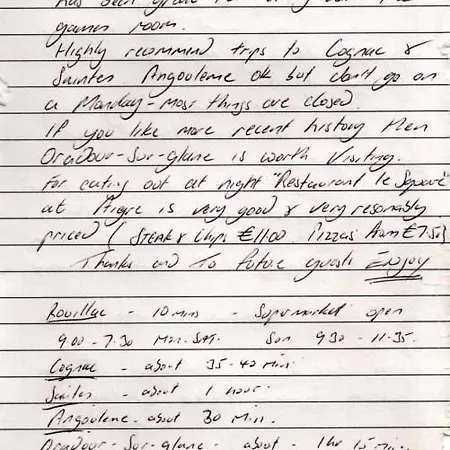 has been great
games room.
Highly recommend trips to Cognac &
Saintes, Angouleme ok but don't go on
a Monday - most things are closed.
If you like more recent history then
Oradour-Sur-glane is worth visiting.
For eating out at night "Restaurant le Square"
at Aigre is very good & very resonably
priced ( STEAK & Chips €11.00 Pizzas from €7.50)
Thanks and To future guests Enjoy
Rouillac - 10 mins - Supermarket open
9.00 - 7.30 Mon-SAT. Sun 9 30 - 11-35.
Cognac - about 35-40 Min
Saintes - about 1 hour.
Angouleme - about 30 Min.
Oradour - Sur-glane - about - 1hr 15 min.